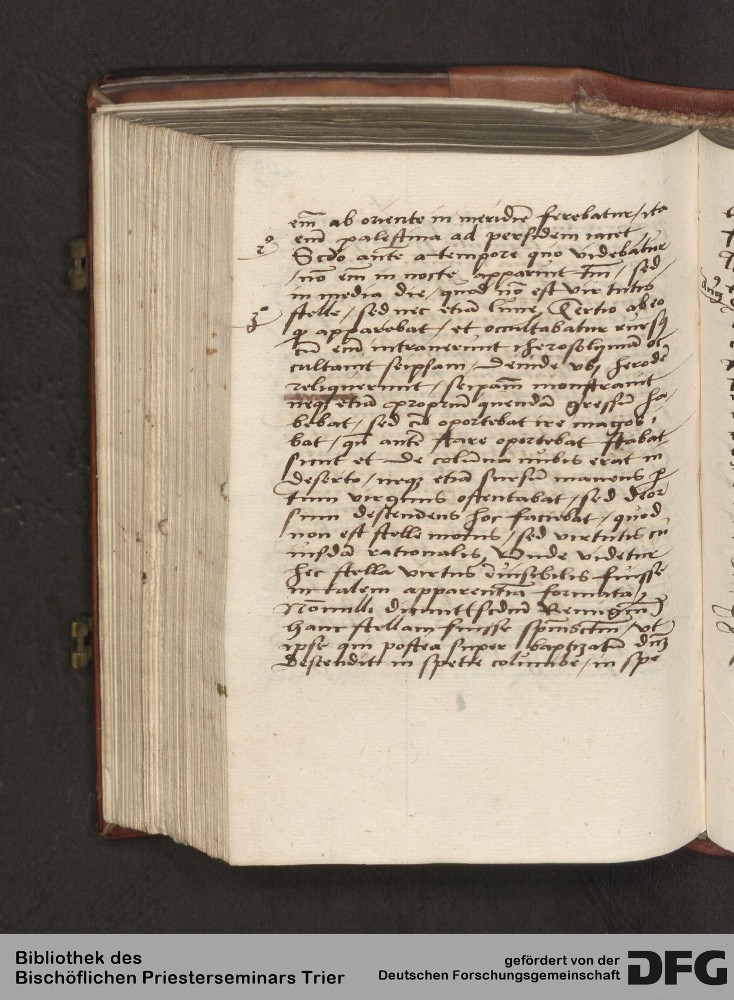 em̄ ab oriente in meridiē ferebatur / ita
enī palestina ad persidem iacet
2º
Scđo ante a tempore quo videbatur
/ nō em̄ in nocte apparuit tm̄ / sed
in media die / quod nō est virtutis
3º
stelle / sed nec etiā lune, Tertio ab eo
ꝙ apparebat / et occultabatur rursꝯ
Cū em̄ intrauerunt iherosolymā oc
cultauit seipsam / deinde vbi herodē
reliquerunt / seipam̄ monstrauit
neqꝫ etiā propriū quendā gressū ha
bebat / sed cū oportebat ire magos
bat / qn̄ autē stare oportebat stabat
sicut et de colūna nubis erat in
deserto / neqꝫ etiā sursū manens
tum virginis ostentabat / sed deor
sum descendens hoc faciebat / quod
non est stelle motus / sed virtutis cu
iusdā rationalis, Vnde videtur
hec stella virtus īuisibilis fuisse
in talem apparentiā formata,
Nōnulli dicunt (scđm Remigiū)
hanc stellam fuisse spm̄sctm̄ / vt
ipse qui postea super baptizatū dn̄ꝫ
descendit in spetie columbe / in spe
Bibliothek des
Bischöflichen Priesterseminars Trier
gefördert von der
Deutschen Forschungsgemeinschaft
DFG